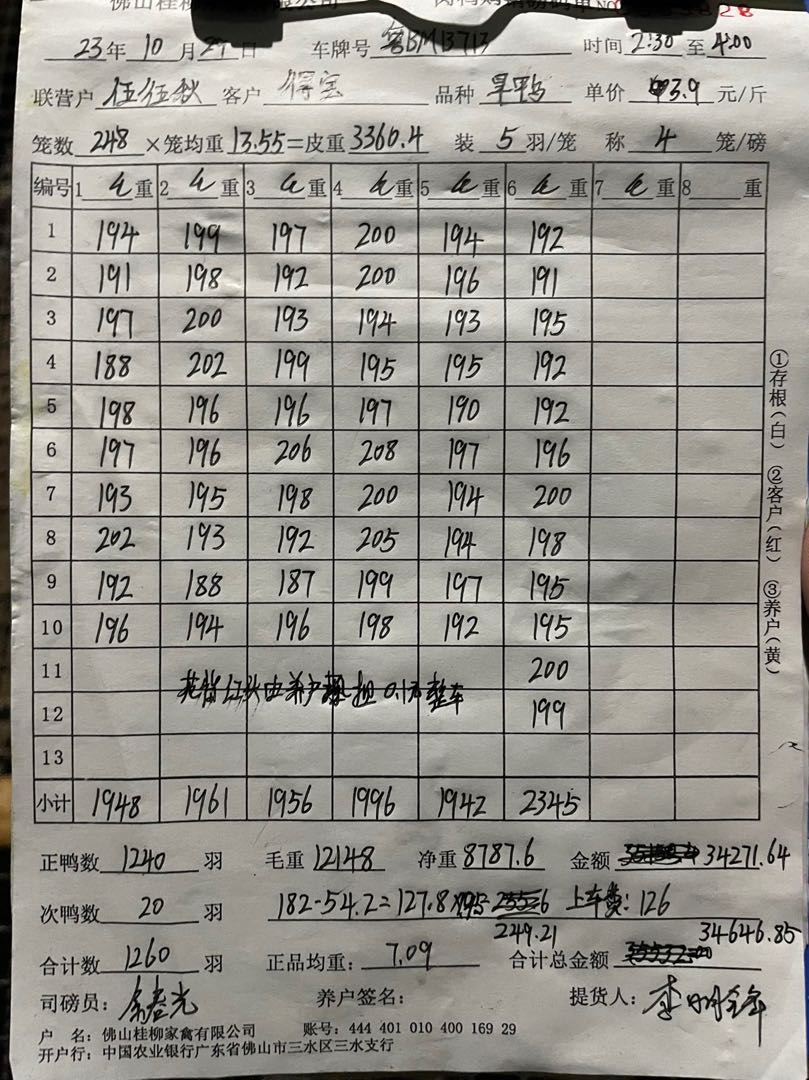 佛山桂柳
23年 10月 29日 车牌号 粤BM13713 时间 2:30 至 4:00
联营户 伍伍秋 客户 得宝 品种 旱鸭 单价 3.9 元/斤
笼数 248 ×笼均重 13.55 =皮重 3360.4 装 5 羽/笼 称 4 笼/磅
编号 1 毛重 2 毛重 3 毛重 4 毛重 5 毛重 6 毛重 7 毛重 8 重
1 194 199 197 200 194 192
2 191 198 192 200 196 191
3 197 200 193 194 193 195
4 188 202 199 195 195 192
5 198 196 196 197 190 192
6 197 196 206 208 197 196
7 193 195 198 200 194 200
8 202 193 192 205 194 198
9 192 188 187 199 197 195
10 196 194 196 198 192 195
11 200
12 199
13
小计 1948 1961 1956 1996 1942 2345
正鸭数 1240 羽 毛重 12148 净重 8787.6 金额 34271.64
次鸭数 20 羽 182-54.2=127.8 上车费:126
249.21 34646.85
合计数 1260 羽 正品均重: 7.09 合计总金额
司磅员: 养户签名: 提货人:
户 名: 佛山桂柳家禽有限公司 账号: 444 401 010 400 169 29
开户行: 中国农业银行广东省佛山市三水区三水支行
①存根(白) ②客户(红) ③养户(黄)